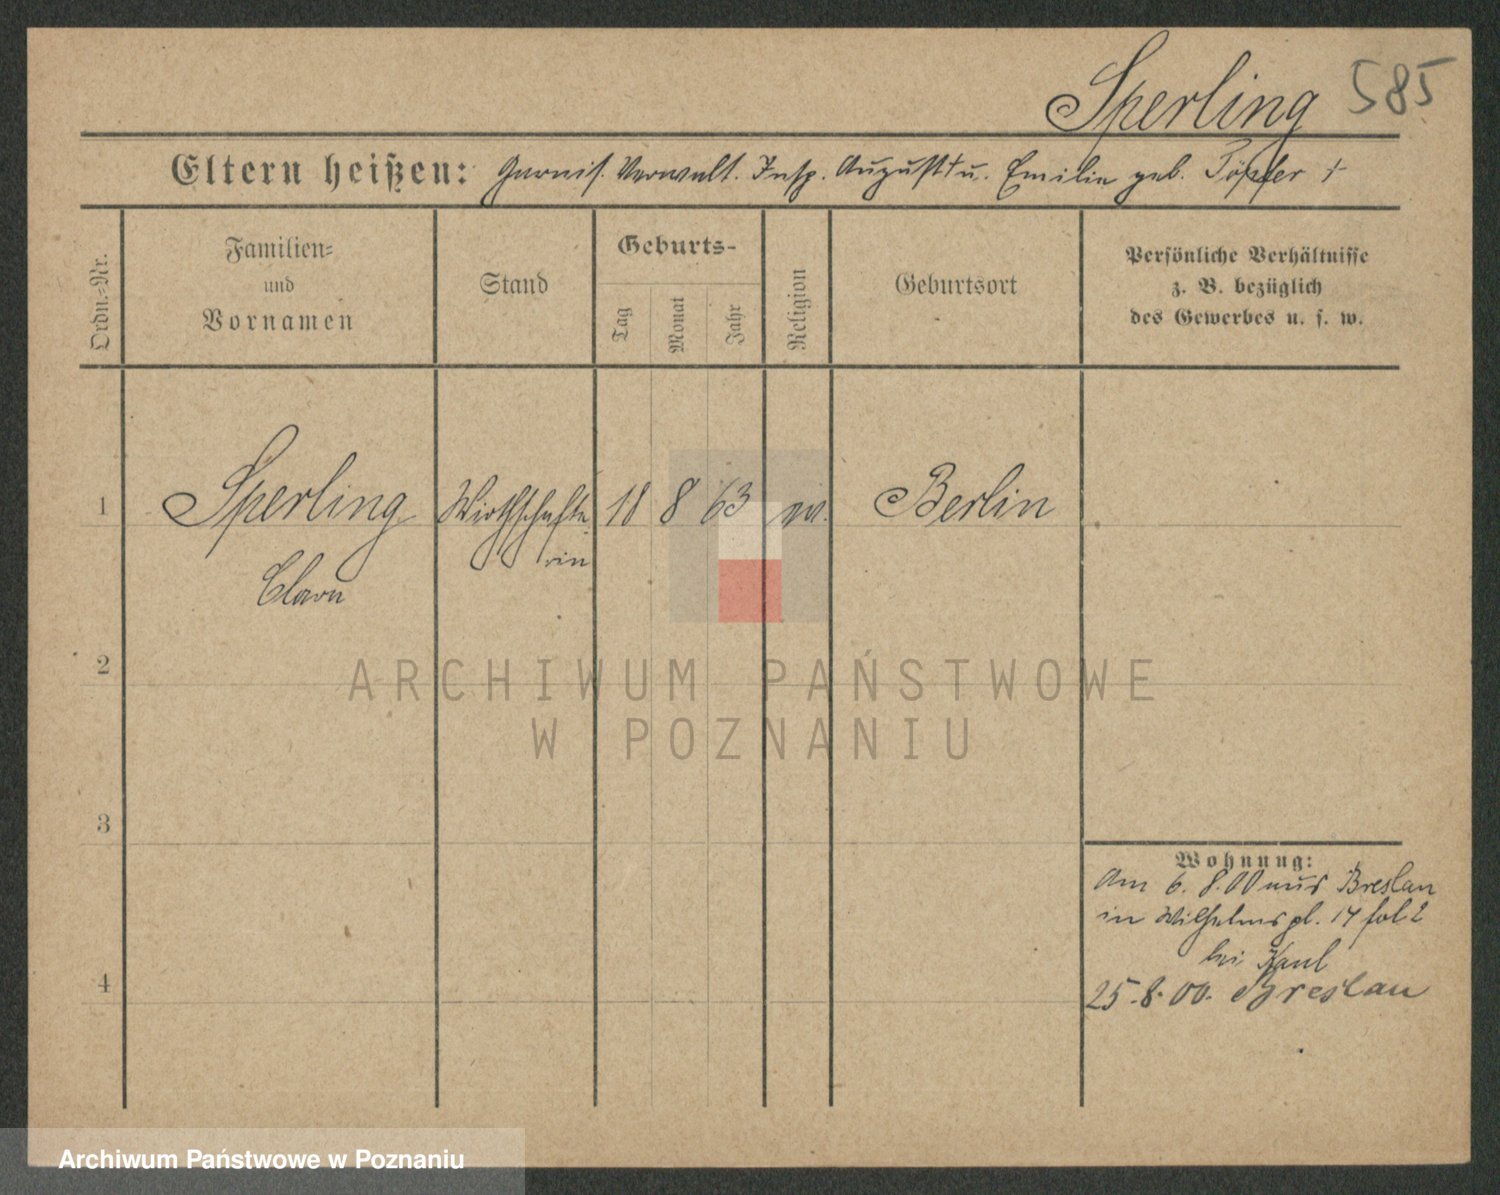 Sperling 585
Eltern heißen: Garnis. Verwalt. Insp. August † u. Emilie geb. Töpfer †
Ordn.-Nr.
Familien-
und
Vornamen
Stand
Geburts-
Tag
Monat
Jahr
Religion
Geburtsort
Persönliche Verhältnisse
z. B. bezüglich
des Gewerbes u. s. w.
1 Sperling Wirthschafte 18 8 63 ev. Berlin
rin
Clara
2
ARCHIWUM PAŃSTWOWE
W POZNANIU
3
Wohnung:
Am 6. 8. 00 aus Breslau
in Wilhelmspl. 14
bei
4
25.8.00. Breslau
Archiwum Państwowe w Poznaniu